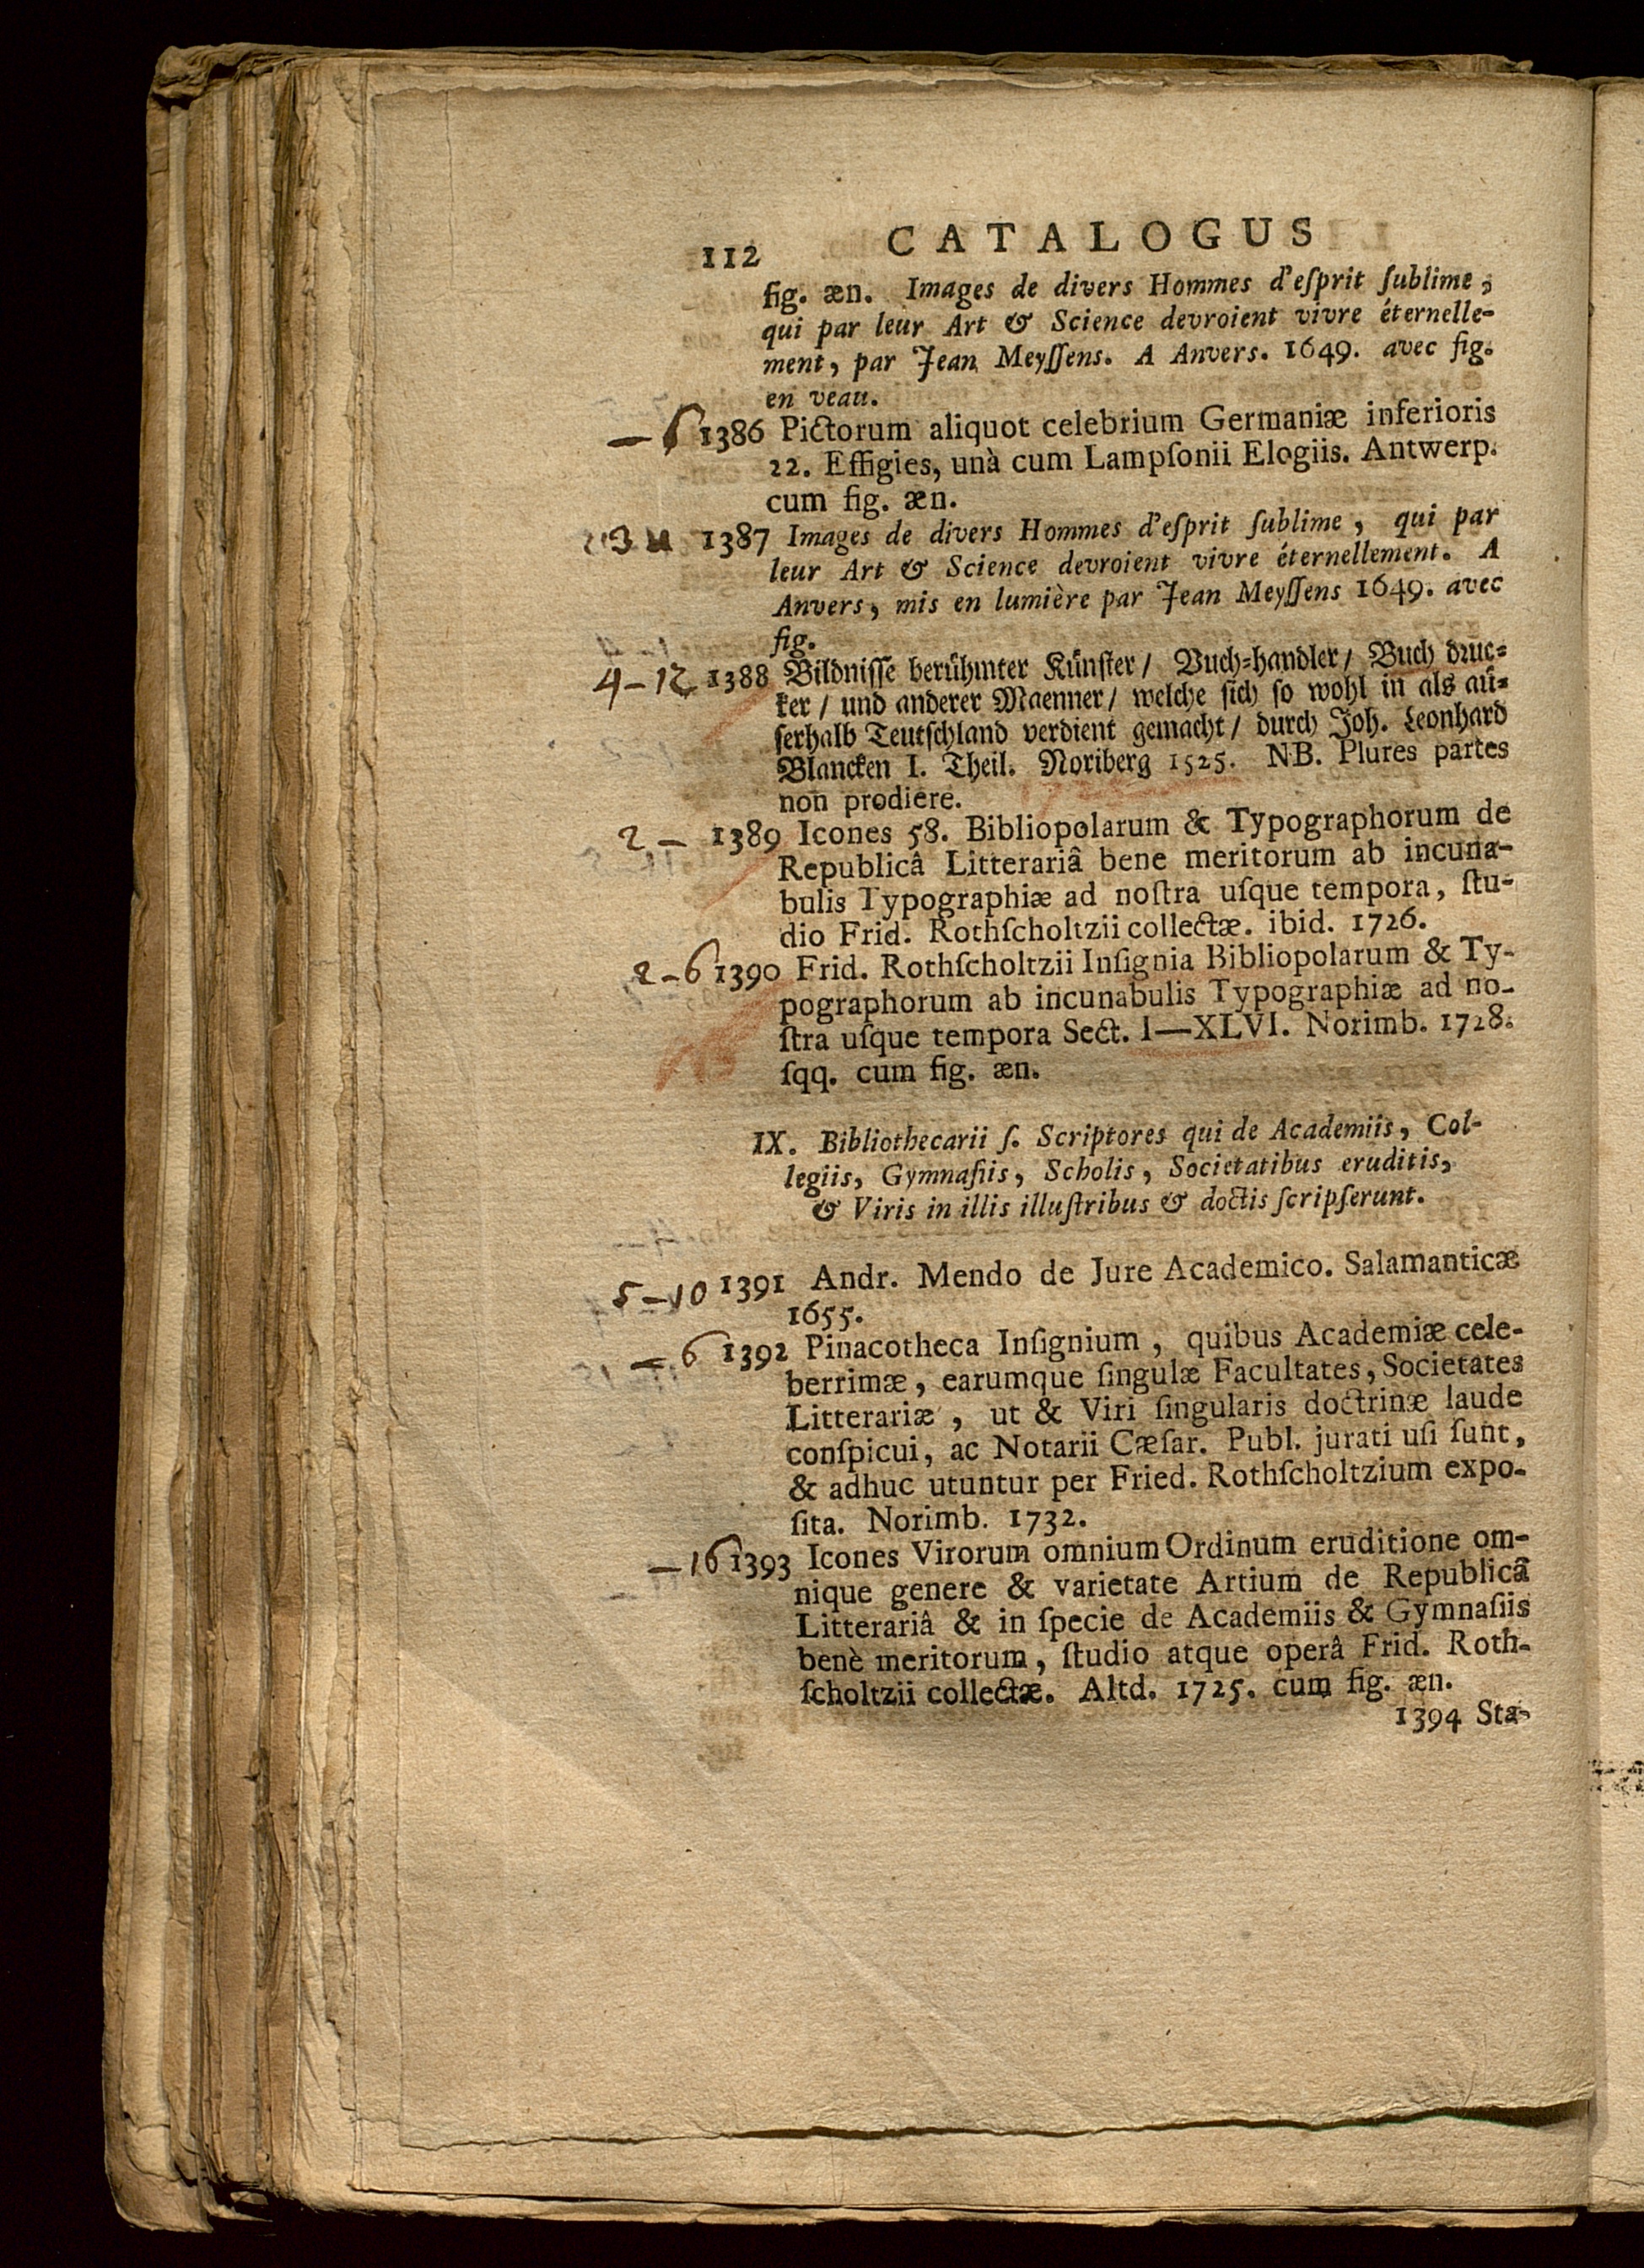 112 CATALOGUS
fig. æn. Images de divers Hommes d'eſprit ſublime,
qui par leur Art & Science devroient vivre éternelle-
ment, par Jean Meyſſens. A Anvers. 1649. avec fig.
en veau.
— 6 1386 Pictorum aliquot celebrium Germaniæ inferioris
22. Effigies, unà cum Lampſonii Elogiis. Antwerp.
cum fig. æn.
1387 Images de divers Hommes d'eſprit ſublime, qui par
leur Art & Science devroient vivre éternellement. A
Anvers, mis en lumière par Jean Meyſſens 1649. avec
fig.
4-12 1388 Bildniſſe berühmter Künſter/ Buch-handler/ Buch druc-
ker/ und anderer Maenner/ welche ſich ſo wohl in als au-
ſerhalb Teutſchland verdient gemacht/ durch Joh. Leonhard
Blancken I. Theil. Noriberg 1525. NB. Plures partes
non prodiere.
2 — 1389 Icones 58. Bibliopolarum & Typographorum de
Republicâ Litterariâ bene meritorum ab incuna-
bulis Typographiæ ad noſtra uſque tempora, ſtu-
dio Frid. Rothſcholtzii collectæ. ibid. 1726.
2-6 1390 Frid. Rothſcholtzii Inſignia Bibliopolarum & Ty-
pographorum ab incunabulis Typographiæ ad no-
ſtra uſque tempora Sect. I—XLVI. Norimb. 1728.
ſqq. cum fig. æn.
IX. Bibliothecarii ſ. Scriptores qui de Academiis, Col-
legiis, Gymnaſiis, Scholis, Societatibus eruditis,
& Viris in illis illuſtribus & doctis ſcripſerunt.
5-10 1391 Andr. Mendo de Jure Academico. Salamanticæ
1655.
— 6 1392 Pinacotheca Inſignium, quibus Academiæ cele-
berrimæ, earumque ſingulæ Facultates, Societates
Litterariæ, ut & Viri ſingularis doctrinæ laude
conſpicui, ac Notarii Cæſar. Publ. jurati uſi ſunt,
& adhuc utuntur per Fried. Rothſcholtzium expo-
ſita. Norimb. 1732.
—16 1393 Icones Virorum omnium Ordinum eruditione om-
nique genere & varietate Artium de Republicâ
Litterariâ & in ſpecie de Academiis & Gymnaſiis
benè meritorum, ſtudio atque operâ Frid. Roth-
ſcholtzii collectæ. Altd. 1725. cum fig. æn.
1394 Sta-